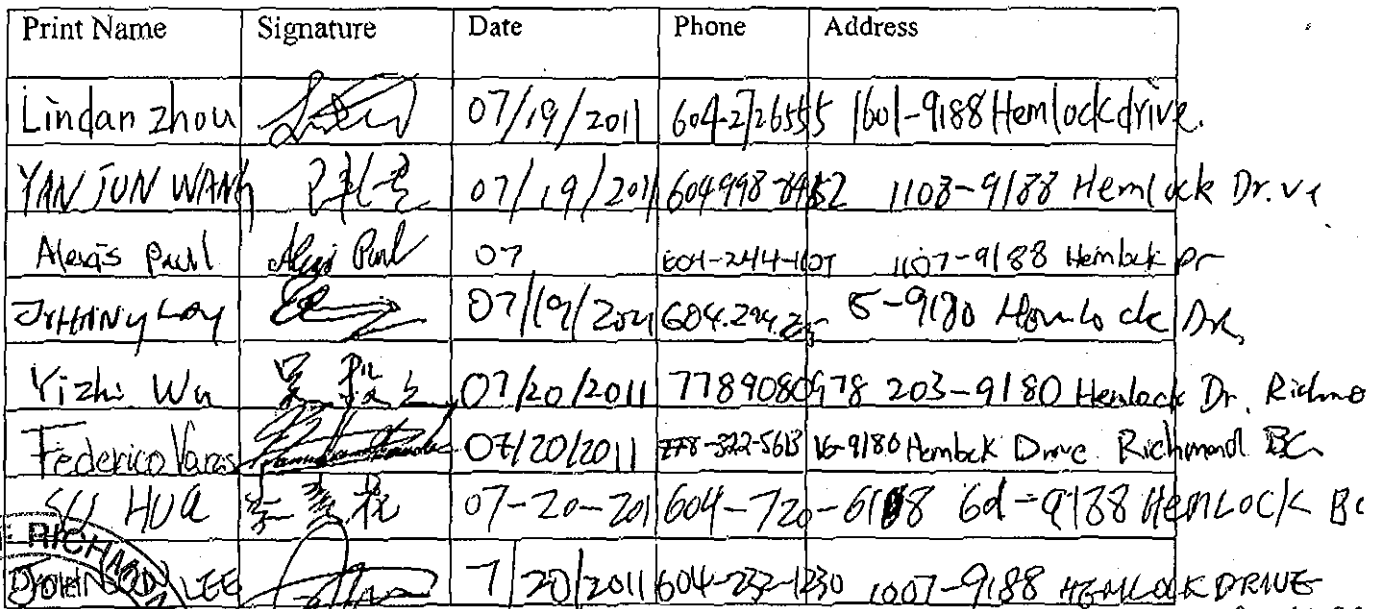 Print Name Signature Date Phone Address
Lindan Zhou 07/19/2011 604-2726555 1601-9188 Hemlock drive.
YAN JUN WANG 07/19/2011 604998-8952 1108-9188 Hemlock Drive
Alexis Paul Alexis Paul 07 604-244-1107 1107-9188 Hemlock Dr
07/19/2011 604.294. 5-9180 Hemlock Dr,
Yizhi Wu 07/20/2011 7789080978 203-9180 Hemlock Dr. Richmo
Federico Varas 07/20/2011 778-322-5613 16-9180 Hemlock Drive Richmond BC
HUA 07-20-2011 604-720-6188 9188 HEMLOCK BC
RICHMOND LEE 7/20/2011 604-232-1230 1007-9188 HEMLOCK DRIVE